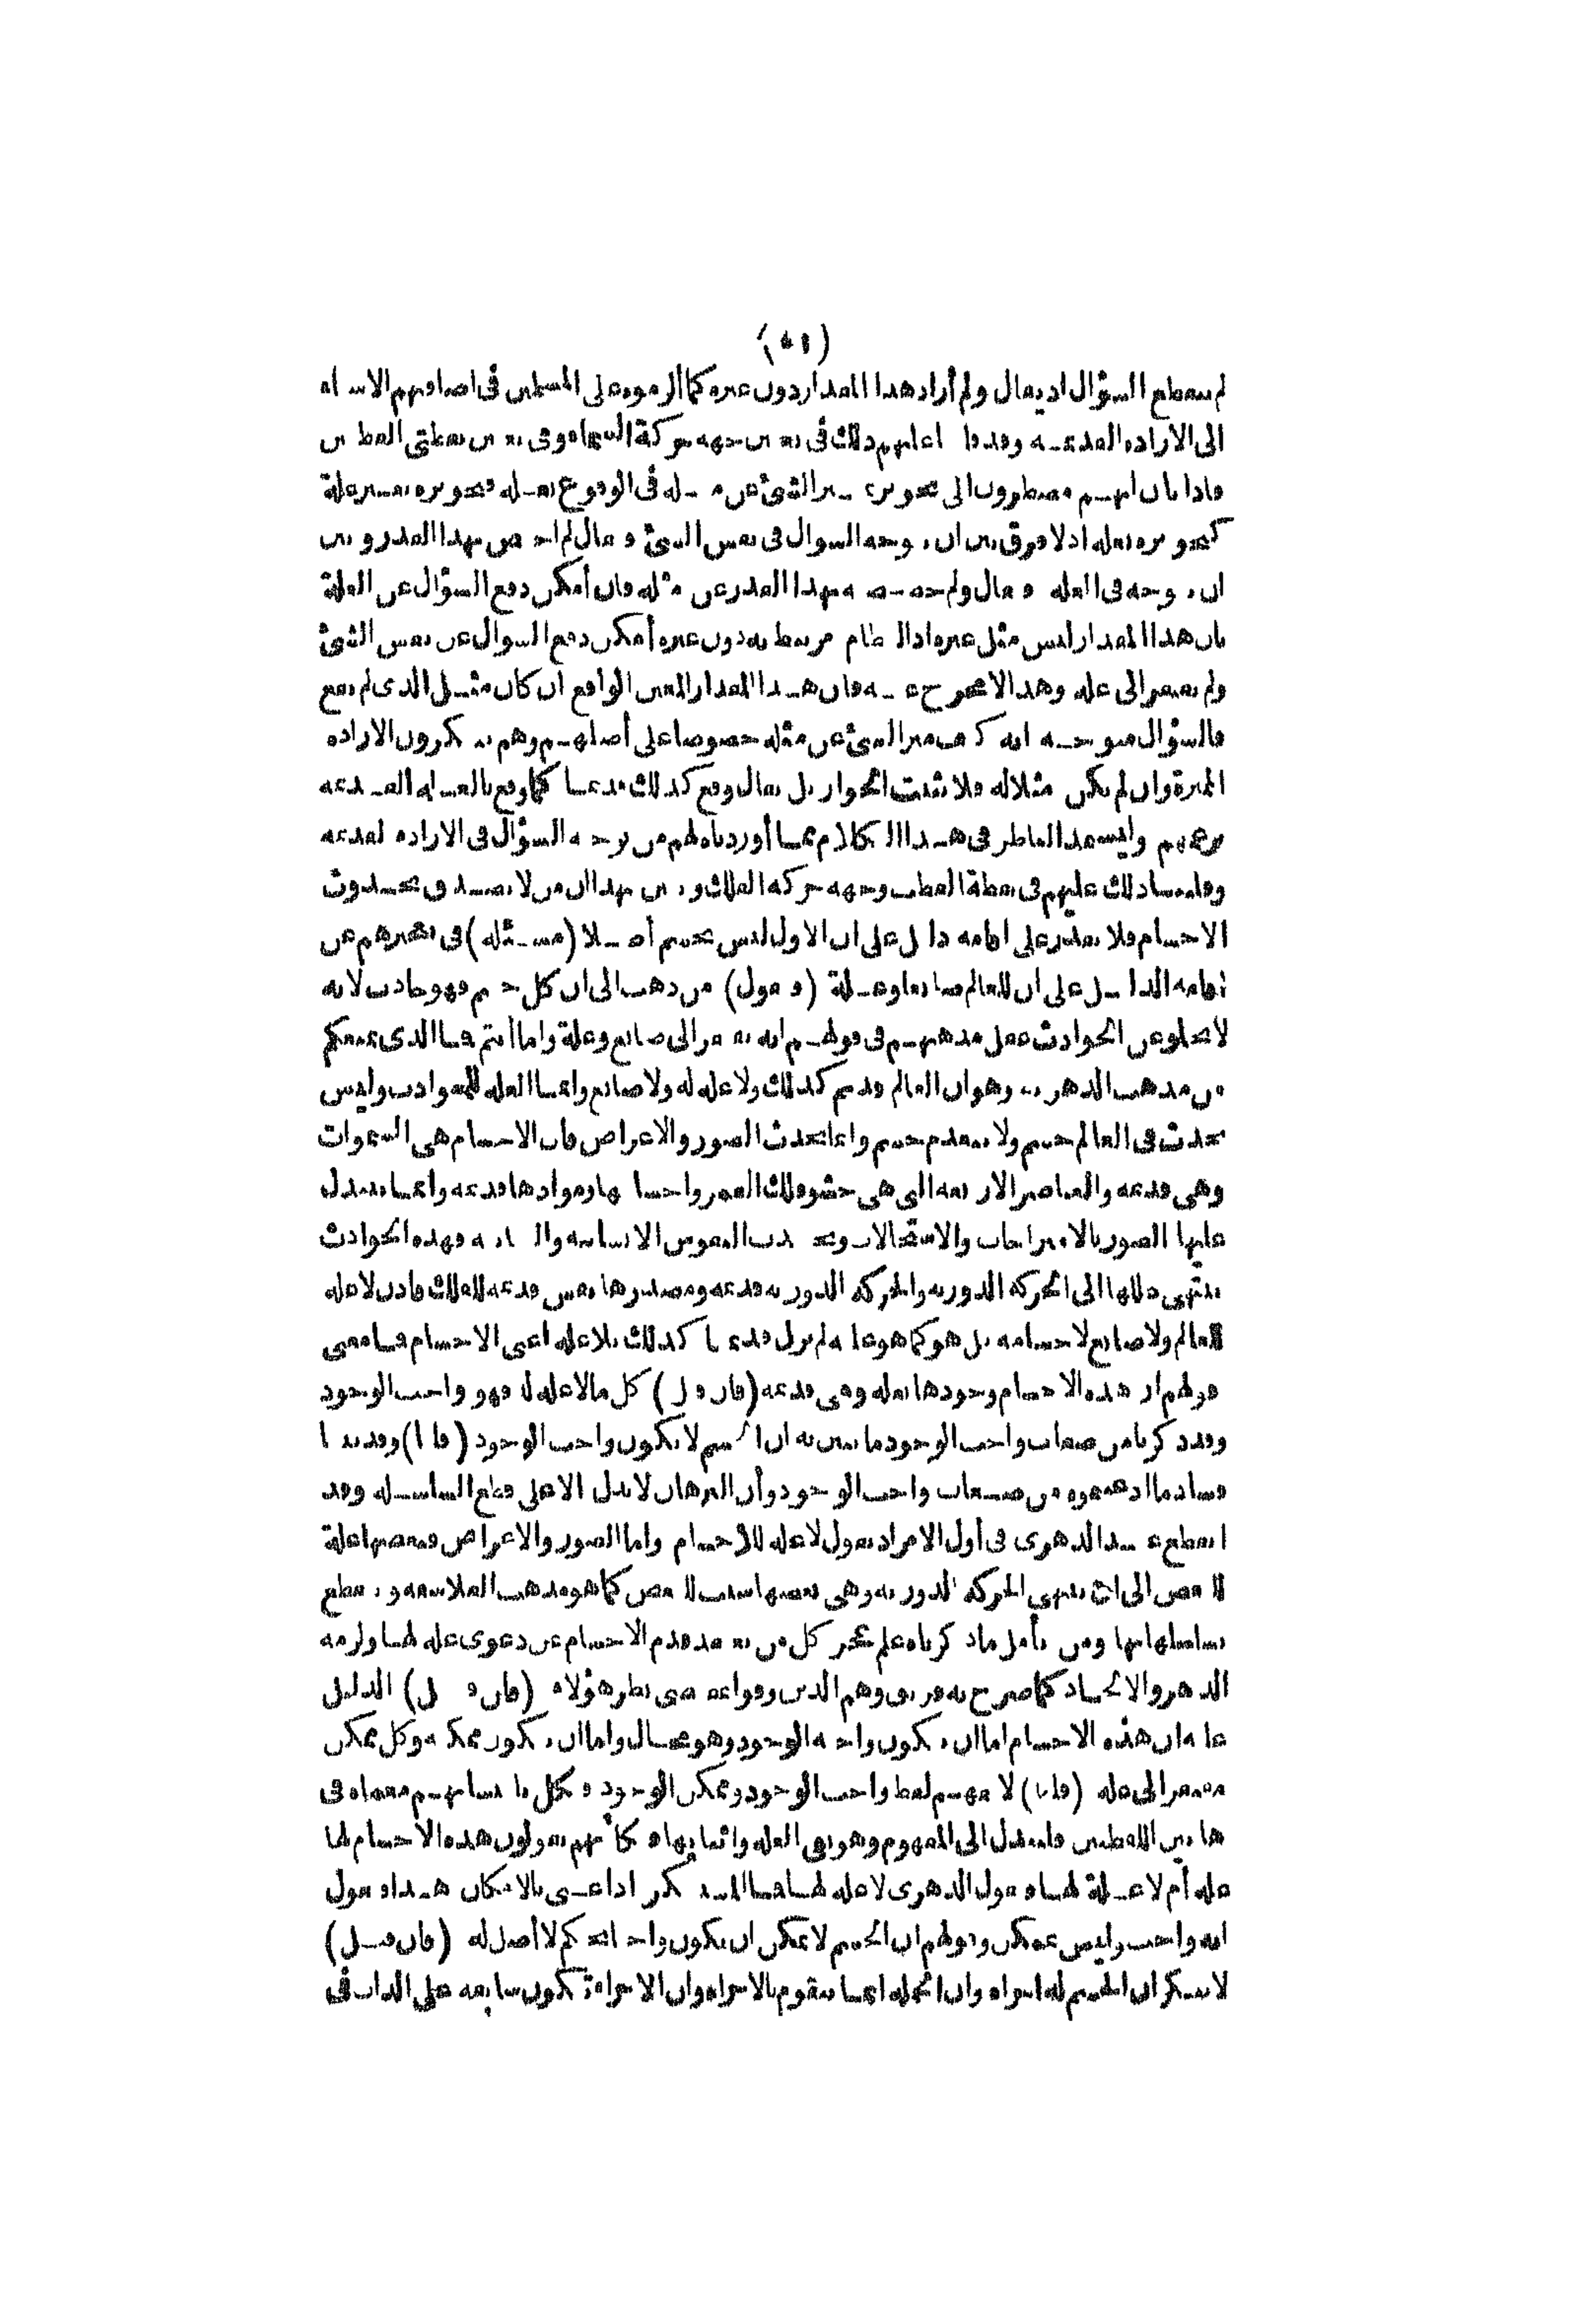 (٥١)
لم ينقطع السؤال اذ يقال ولم أراد هذا المقدار دون غيره كما ألزموه على المسلمين فى اضافتهم الاشياء
الى الارادة القديمة وقد قلبنا عليهم ذلك فى تعيين جهة حركة السماء وفى تعيين نقطتى القطبين
فاذا بان انهم مضطرون الى تجويز تميز الشئ عن مثله فى الوقوع بعلة فتجويزه بغير علة
كتجويزه بعلة اذ لا فرق بين ان يتوجه السؤال فى نفس الشئ فيقال لم اختص بهذا القدر وبين
ان يتوجه فى العلة فيقال ولم خصصه بهذا القدر عن مثله فان أمكن دفع السؤال عن العلة
بان هذا المقدار ليس مثل غيره اذ النظام مرتبط به دون غيره أمكن دفع السؤال عن نفس الشئ
ولم يفتقر الى علة وهذا لا مخرج عنه فان هذا المقدار المعين الواقع ان كان مثل الذى لم يقع
فالسؤال متوجه انه كيف ميز الشئ عن مثله خصوصا على أصلهم وهم ينكرون الارادة
المميزة وان لم يكن مثلا له فلا يثبت الجواز بل يقال وقع كذلك قديما كما وقع بالعلة القديمة
بزعمهم وليستمد الناظر فى هذا الكلام مما أوردناه لهم من توجه السؤال فى الارادة القديمة
وقلبنا ذلك عليهم فى نقطة القطب وجهة حركة الفلك وتبين بهذا ان من لا يصدق بحدوث
الاجسام فلا يقدر على اقامة دليل على ان الاول ليس بجسم أصلا (مسئلة) فى تعجيزهم عن
اقامة الدليل على ان للعالم صانعا وعلة (فنقول) من ذهب الى ان كل جسم فهو حادث لانه
لا يخلو عن الحوادث عقل مذهبهم فى قولهم انه يفتقر الى صانع وعلة واما أنتم فما الذى يمنعكم
من مذهب الدهرية وهو ان العالم قديم كذلك ولا علة له ولا صانع وانما العلة للحوادث وليس
يحدث فى العالم جسم ولا ينعدم جسم وانما تحدث الصور والاعراض فان الاجسام هى السموات
وهى قديمة والعناصر الاربعة التى هى حشو فلك القمر واجسامها وموادها قديمة وانما تتبدل
عليها الصور بالامتزاجات والاستحالات وتحدث النفوس الانسانية والنباتية فهذه الحوادث
تنتهى عللها الى الحركة الدورية والحركة الدورية قديمة ومصدرها نفس قديمة للفلك فاذن لا علة
للعالم ولا صانع لاجسامه بل هو كما هو عليه لم يزل قديما كذلك بلا علة اعنى الاجسام فما معنى
قولهم ان هذه الاجسام وجودها بعلة وهى قديمة (فان قيل) كل ما لا علة له فهو واجب الوجود
وقد ذكرنا من صفات واجب الوجود ما تبين به ان الجسم لا يكون واجب الوجود (قلنا) وقد بينا
فساد ما ادعيتموه من صفات واجب الوجود وأن البرهان لا يدل الا على قطع السلسلة وقد
انقطع عند الدهرى فى أول الامر اذ يقول لا علة للاجسام واما الصور والاعراض فبعضها علة
للبعض الى ان تنتهى الى الحركة الدورية وهى بعضها سبب للبعض كما هو مذهب الفلاسفة وينقطع
تسلسلها بها ومن تأمل ما ذكرناه علم عجز كل من يعتقد قدم الاجسام عن دعوى علة لها ولزمه
الدهر والالحاد كما صرح به فريق وهم الذين وفوا بمقتضى نظر هؤلاء (فان قيل) الدليل
عليه ان هذه الاجسام اما ان تكون واجبة الوجود وهو محال واما ان تكون ممكنة وكل ممكن
مفتقر الى علة (قلنا) لا يفهم لفظ واجب الوجود وممكن الوجود فكل تلبيساتهم مخبأة فى
هاتين اللفظتين فلنعدل الى المفهوم وهو نفى العلة واثباتها فكأنهم يقولون هذه الاجسام لها
علة أم لا علة لها فيقول الدهرى لا علة لها فما المستنكر اذا عنى بالامكان هذا فنقول
انه واجب وليس بممكن وقولهم ان الجسم لا يمكن ان يكون واجبا تحكم لا أصل له (فان قيل)
لا ينكر ان الجسم له اجزاء وان الجملة انما تتقوم بالاجزاء وان الاجزاء تكون سابقة على الذات فى